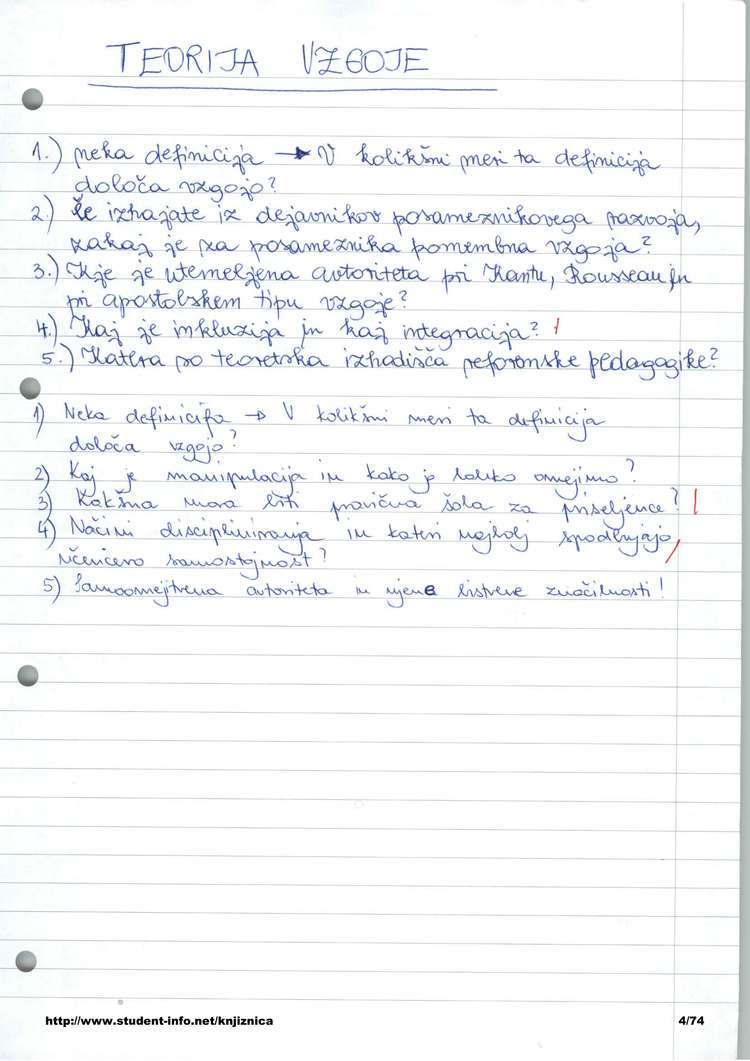 TEORIJA VZGOJE
1.) neka definicija → V kolikšni meri ta definicija
določa vzgojo?
2.) Če izhajate iz dejavnikov posameznikovega razvoja,
zakaj je za posameznika pomembna vzgoja?
3.) Kje je utemeljena avtoriteta pri Kantu, Rousseau in
pri apostolskem tipu vzgoje?
4.) Kaj je inkluzija in kaj integracija?
5.) Katera so teoretska izhodišča reformske pedagogike?
1) Neka definicija → V kolikšni meri ta definicija
določa vzgojo?
2) Kaj je manipulacija in kako jo lahko omejimo?
3) Kakšna mora biti pravična šola za priseljence?
4) Načini discipliniranja in kateri najbolj spodbujajo
učenčevo samostojnost?
5) Samoomejitvena avtoriteta in njene bistvene značilnosti!
http://www.student-info.net/knjiznica
4/74